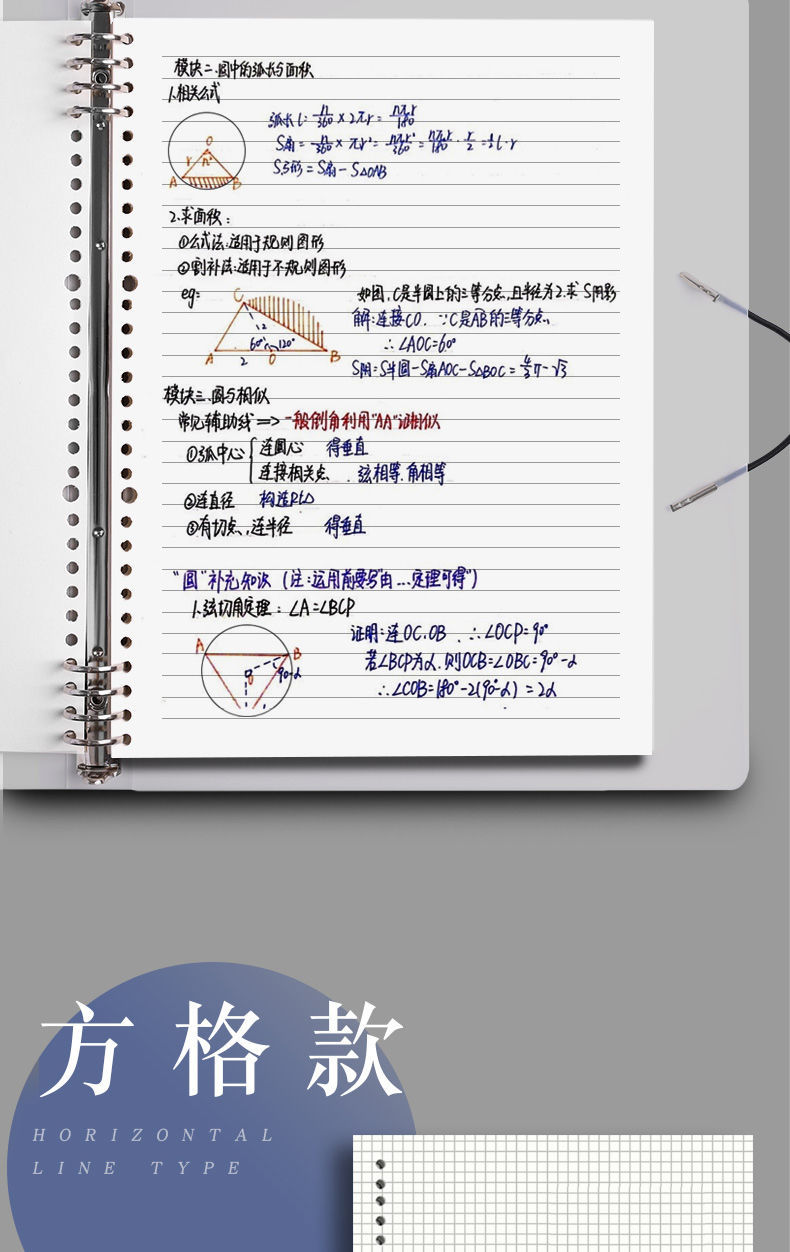 模块二.圆中的弧长与面积
1.相关公式
弧长l= n/360 × 2πr = nπr/180
S扇 = n/360 × πr² = nπr²/360 = nπr/180 · r/2 = ½l·r
S弓形 = S扇 − S△OAB
O
r n°
A B
2.求面积:
①公式法:适用于规则图形
②割补法:适用于不规则图形
eg:
C
2
60° 120°
A 2 O B
如图,C是半圆上的三等分点,且半径为2.求 S阴影
解:连接CO, ∵C是AB的三等分点
∴ ∠AOC=60°
S阴=S半圆−S扇AOC−S△BOC= 4/3π−√3
模块三.圆与相似
常见辅助线=> 一般倒角利用"AA"证相似
①弧中心 { 连圆心 得垂直
连接相关点 弦相等.角相等
②连直径 构造Rt△
③有切点,连半径 得垂直
"圆"补充知识 (注:运用前要写"由...定理可得")
1.弦切角定理: ∠A=∠BCP
A B
O 90-α
证明:连OC.OB ∴∠OCP=90°
若∠BCP为α.则∠OCB=∠OBC=90°-α
∴∠COB=180°-2(90°-α) = 2α
方格款
HORIZONTAL
LINE TYPE